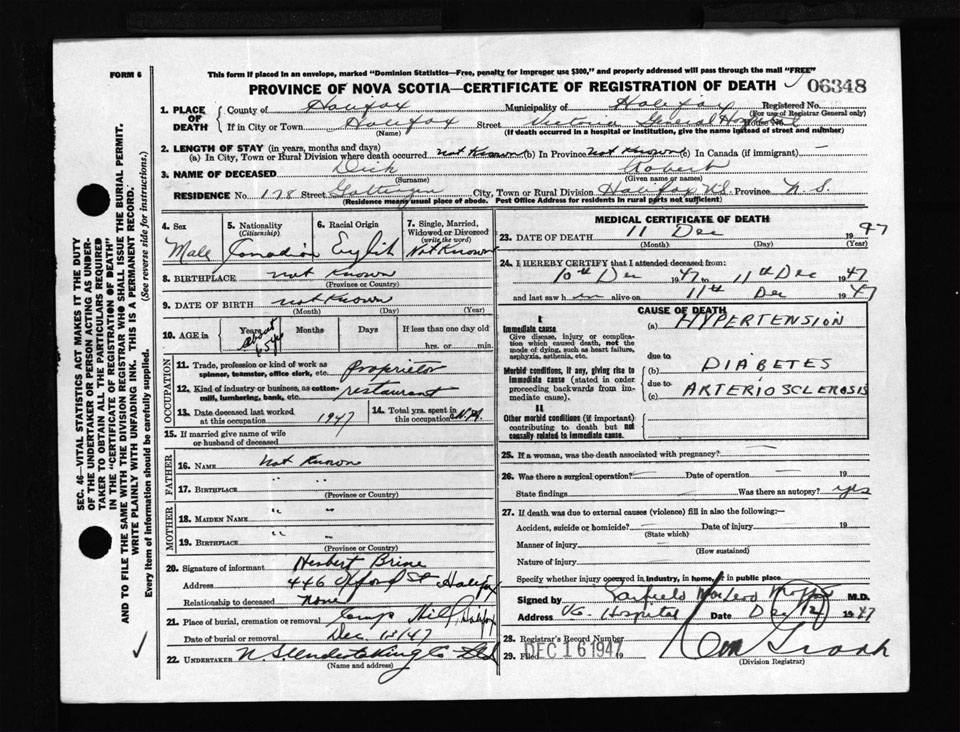 FORM 6
This form if placed in an envelope, marked "Dominion Statistics—Free, penalty for improper use $300," and properly addressed will pass through the mail "FREE"
PROVINCE OF NOVA SCOTIA—CERTIFICATE OF REGISTRATION OF DEATH 06348
1. PLACE OF DEATH County of Halifax Municipality of Halifax Registered No.
(For use of Registrar General only)
If in City or Town Halifax Street Victoria General Hospital House No.
(Name) (If death occurred in a hospital or institution, give the name instead of street and number)
2. LENGTH OF STAY (in years, months and days)
(a) In City, Town or Rural Division where death occurred not Known (b) In Province not Known (c) In Canada (if immigrant) —
3. NAME OF DECEASED Dick Robert
(Surname) (Given name or names)
RESIDENCE No. 178 Street Gottingen City, Town or Rural Division Halifax N.S. Province N. S.
(Residence means usual place of abode. Post Office Address for residents in rural parts not sufficient)
4. Sex 5. Nationality (Citizenship) 6. Racial Origin 7. Single, Married, Widowed or Divorced (write the word)
Male Canadian English Not Known
8. BIRTHPLACE not Known
(Province or Country)
9. DATE OF BIRTH not Known
(Month) (Day) (Year)
10. AGE in Years Months Days If less than one day old
about 65 hrs. or min.
OCCUPATION
11. Trade, profession or kind of work as spinner, teamster, office clerk, etc. proprietor
12. Kind of industry or business, as cotton-mill, lumbering, bank, etc. restaurant
13. Date deceased last worked at this occupation 1947 14. Total yrs. spent in this occupation
15. If married give name of wife or husband of deceased
FATHER
16. NAME not Known
17. BIRTHPLACE " "
(Province or Country)
MOTHER
18. MAIDEN NAME " "
19. BIRTHPLACE " "
(Province or Country)
20. Signature of informant Herbert Brine
Address 446 Oxford St Halifax
Relationship to deceased None
21. Place of burial, cremation or removal Camp Hill, Halifax
Date of burial or removal Dec. 15/47
22. UNDERTAKER N.S. Undertaking Co Ltd
(Name and address)
MEDICAL CERTIFICATE OF DEATH
23. DATE OF DEATH 11 Dec 1947
(Month) (Day) (Year)
24. I HEREBY CERTIFY that I attended deceased from:
10th Dec 1947 to 11th Dec 1947
and last saw h im alive on 11th Dec 1947
CAUSE OF DEATH
I
Immediate cause (a) HYPERTENSION
Give disease, injury or complication which caused death, not the mode of dying, such as heart failure, asphyxia, asthenia, etc.
due to
Morbid conditions, if any, giving rise to immediate cause (stated in order proceeding backwards from immediate cause). (b) DIABETES
due to
(c) ARTERIOSCLEROSIS
II
Other morbid conditions (if important) contributing to death but not causally related to immediate cause.
25. If a woman, was the death associated with pregnancy?
26. Was there a surgical operation? — Date of operation — 19
State findings — Was there an autopsy? yes
27. If death was due to external causes (violence) fill in also the following:—
Accident, suicide or homicide? Date of injury 19
(State which)
Manner of injury
(How sustained)
Nature of injury
Specify whether injury occured in industry, in home, or in public place.
Signed by Garfield MacLeod M.D.
V.G. Hospital Date Dec 12 1947
28. Registrar's Record Number
29. Filed DEC 16 1947 19
(Division Registrar)
SEC. 46—VITAL STATISTICS ACT MAKES IT THE DUTY
OF THE UNDERTAKER OR PERSON ACTING AS UNDER-
TAKER TO OBTAIN ALL THE PARTICULARS REQUIRED
IN THE "CERTIFICATE OF REGISTRATION OF DEATH"
AND TO FILE THE SAME WITH THE DIVISION REGISTRAR WHO SHALL ISSUE THE BURIAL PERMIT.
WRITE PLAINLY WITH UNFADING INK. THIS IS A PERMANENT RECORD.
Every item of information should be carefully supplied. (See reverse side for instructions.)